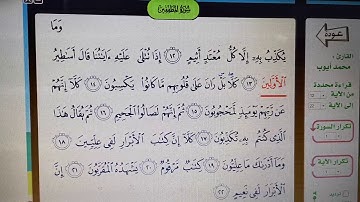 سورة المطففين
وما
يكذب به إلا كل معتد أثيم ١٢ إذا تتلى عليه ءايتنا قال أسطير
الأولين ١٣ كلا بل ران على قلوبهم ما كانوا يكسبون ١٤ كلا إنهم
عن ربهم يومئذ لمحجوبون ١٥ ثم إنهم لصالوا الجحيم ١٦ ثم يقال هذا
الذي كنتم به تكذبون ١٧ كلا إن كتب الأبرار لفي عليين ١٨
وما أدرىك ما عليون ١٩ كتب مرقوم ٢٠ يشهده المقربون ٢١ إن
الأبرار لفي نعيم ٢٢
عودة
القارئ:
محمد أيوب
قراءة محددة
من الآية
الى الآية
تكرار السورة
تكرار الآية